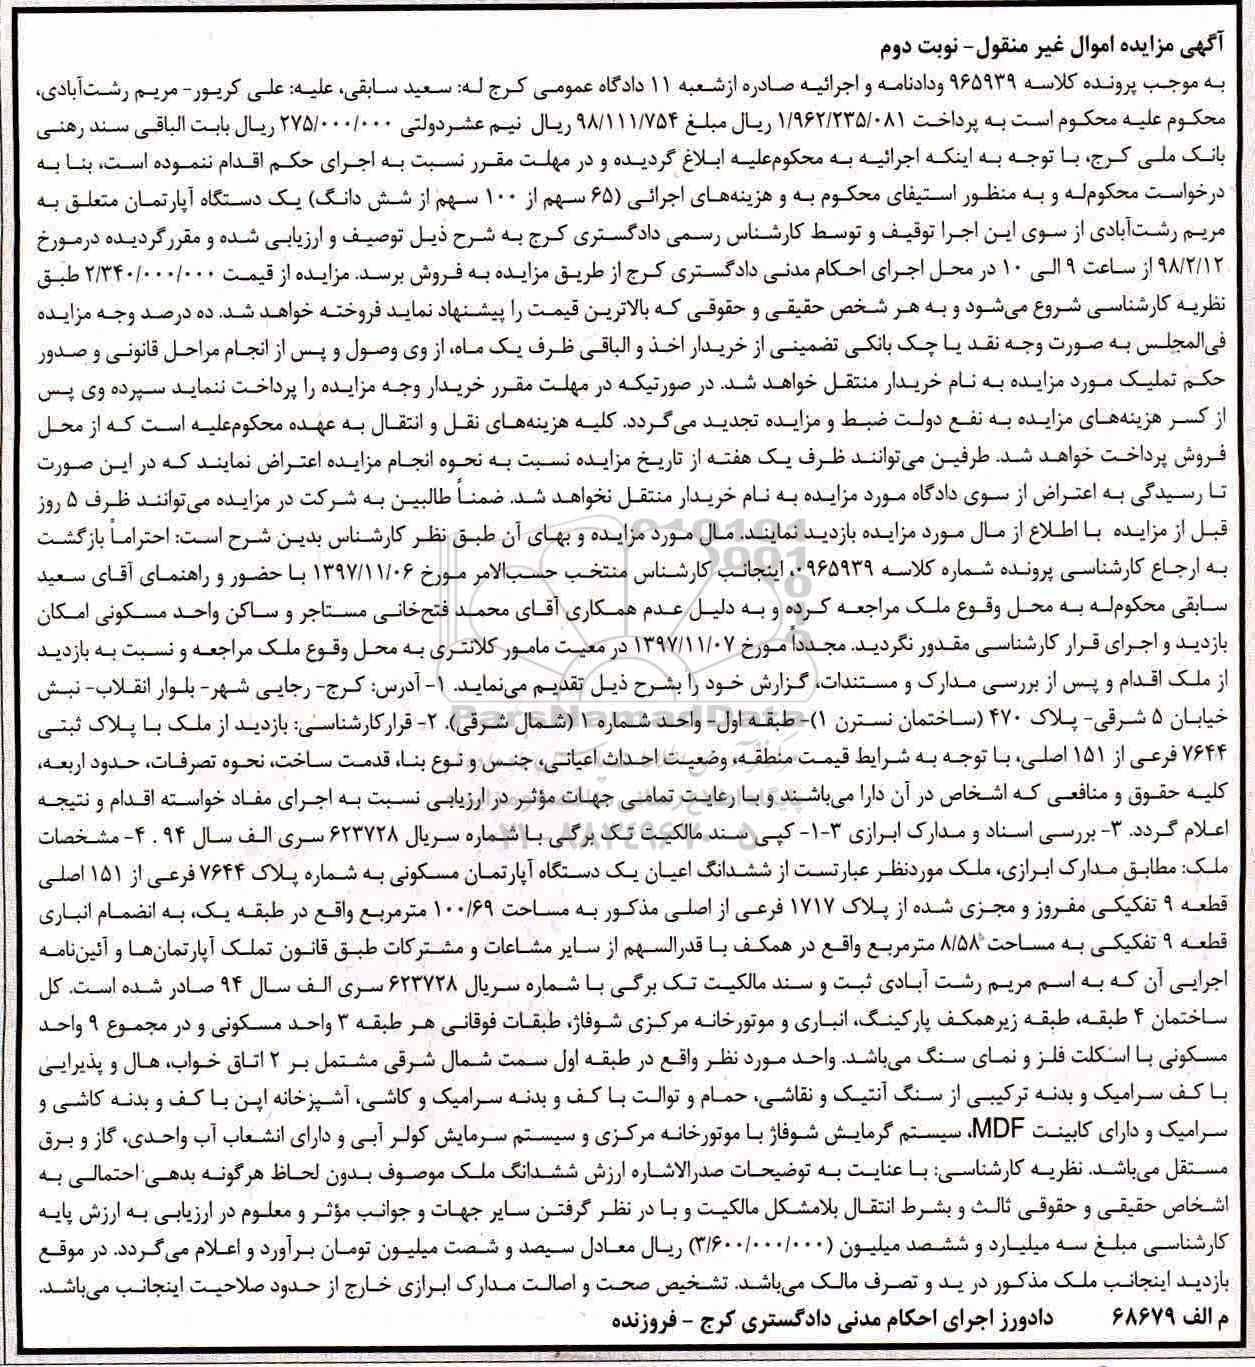 آگهی مزایده اموال غیر منقول- نوبت دوم
به موجب پرونده کلاسه ۹۶۵۹۳۹ ودادنامه و اجرائیه صادره ازشعبه ۱۱ دادگاه عمومی کرج له: سعید سابقی، علیه: علی کریور- مریم رشت‌آبادی،
محکوم علیه محکوم است به پرداخت ۱/۹۶۲/۲۳۵/۰۸۱ ریال مبلغ ۹۸/۱۱۱/۷۵۴ ریال نیم عشردولتی ۲۷۵/۰۰۰/۰۰۰ ریال بابت الباقی سند رهنی
بانک ملی کرج، با توجه به اینکه اجرائیه به محکوم‌علیه ابلاغ گردیده و در مهلت مقرر نسبت به اجرای حکم اقدام ننموده است، بنا به
درخواست محکوم‌له و به منظور استیفای محکوم به و هزینه‌های اجرائی (۶۵ سهم از ۱۰۰ سهم از شش دانگ) یک دستگاه آپارتمان متعلق به
مریم رشت‌آبادی از سوی این اجرا توقیف و توسط کارشناس رسمی دادگستری کرج به شرح ذیل توصیف و ارزیابی شده و مقررگردیده درمورخ
۹۸/۲/۱۲ از ساعت ۹ الی ۱۰ در محل اجرای احکام مدنی دادگستری کرج از طریق مزایده به فروش برسد. مزایده از قیمت ۲/۳۴۰/۰۰۰/۰۰۰ طبق
نظریه کارشناسی شروع می‌شود و به هر شخص حقیقی و حقوقی که بالاترین قیمت را پیشنهاد نماید فروخته خواهد شد. ده درصد وجه مزایده
فی‌المجلس به صورت وجه نقد یا چک بانکی تضمینی از خریدار اخذ و الباقی ظرف یک ماه، از وی وصول و پس از انجام مراحل قانونی و صدور
حکم تملیک مورد مزایده به نام خریدار منتقل خواهد شد. در صورتیکه در مهلت مقرر خریدار وجه مزایده را پرداخت ننماید سپرده وی پس
از کسر هزینه‌های مزایده به نفع دولت ضبط و مزایده تجدید می‌گردد. کلیه هزینه‌های نقل و انتقال به عهده محکوم‌علیه است که از محل
فروش پرداخت خواهد شد. طرفین می‌توانند ظرف یک هفته از تاریخ مزایده نسبت به نحوه انجام مزایده اعتراض نمایند که در این صورت
تا رسیدگی به اعتراض از سوی دادگاه مورد مزایده به نام خریدار منتقل نخواهد شد. ضمناً طالبین به شرکت در مزایده می‌توانند ظرف ۵ روز
قبل از مزایده با اطلاع از مال مورد مزایده بازدید نمایند. مال مورد مزایده و بهای آن طبق نظر کارشناس بدین شرح است: احتراماً بازگشت
به ارجاع کارشناسی پرونده شماره کلاسه ۰۹۶۵۹۳۹، اینجانب کارشناس منتخب حسب‌الامر مورخ ۱۳۹۷/۱۱/۰۶ با حضور و راهنمای آقای سعید
سابقی محکوم‌له به محل وقوع ملک مراجعه کرده و به دلیل عدم همکاری آقای محمد فتح‌خانی مستاجر و ساکن واحد مسکونی امکان
بازدید و اجرای قرار کارشناسی مقدور نگردید. مجدداً مورخ ۱۳۹۷/۱۱/۰۷ در معیت مامور کلانتری به محل وقوع ملک مراجعه و نسبت به بازدید
از ملک اقدام و پس از بررسی مدارک و مستندات، گزارش خود را بشرح ذیل تقدیم می‌نماید. ۱- آدرس: کرج- رجایی شهر- بلوار انقلاب- نبش
خیابان ۵ شرقی- پلاک ۴۷۰ (ساختمان نسترن ۱)- طبقه اول- واحد شماره ۱ (شمال شرقی). ۲- قرارکارشناسی: بازدید از ملک با پلاک ثبتی
۷۶۴۴ فرعی از ۱۵۱ اصلی، با توجه به شرایط قیمت منطقه، وضعیت احداث اعیانی، جنس و نوع بنا، قدمت ساخت، نحوه تصرفات، حدود اربعه،
کلیه حقوق و منافعی که اشخاص در آن دارا می‌باشند و با رعایت تمامی جهات مؤثر در ارزیابی نسبت به اجرای مفاد خواسته اقدام و نتیجه
اعلام گردد. ۳- بررسی اسناد و مدارک ابرازی ۳-۱- کپی سند مالکیت تک برگی با شماره سریال ۶۲۳۷۲۸ سری الف سال ۹۴ . ۴- مشخصات
ملک: مطابق مدارک ابرازی، ملک موردنظر عبارتست از ششدانگ اعیان یک دستگاه آپارتمان مسکونی به شماره پلاک ۷۶۴۴ فرعی از ۱۵۱ اصلی
قطعه ۹ تفکیکی مفروز و مجزی شده از پلاک ۱۷۱۷ فرعی از اصلی مذکور به مساحت ۱۰۰/۶۹ مترمربع واقع در طبقه یک، به انضمام انباری
قطعه ۹ تفکیکی به مساحت ۸/۵۸ مترمربع واقع در همکف با قدرالسهم از سایر مشاعات و مشترکات طبق قانون تملک آپارتمان‌ها و آئین‌نامه
اجرایی آن که به اسم مریم رشت آبادی ثبت و سند مالکیت تک برگی با شماره سریال ۶۲۳۷۲۸ سری الف سال ۹۴ صادر شده است. کل
ساختمان ۴ طبقه، طبقه زیرهمکف پارکینگ، انباری و موتورخانه مرکزی شوفاژ، طبقات فوقانی هر طبقه ۳ واحد مسکونی و در مجموع ۹ واحد
مسکونی با اسکلت فلز و نمای سنگ می‌باشد. واحد مورد نظر واقع در طبقه اول سمت شمال شرقی مشتمل بر ۲ اتاق خواب، هال و پذیرایی
با کف سرامیک و بدنه ترکیبی از سنگ آنتیک و نقاشی، حمام و توالت با کف و بدنه سرامیک و کاشی، آشپزخانه اپن با کف و بدنه کاشی و
سرامیک و دارای کابینت MDF، سیستم گرمایش شوفاژ با موتورخانه مرکزی و سیستم سرمایش کولر آبی و دارای انشعاب آب واحدی، گاز و برق
مستقل می‌باشد. نظریه کارشناسی: با عنایت به توضیحات صدرالاشاره ارزش ششدانگ ملک موصوف بدون لحاظ هرگونه بدهی احتمالی به
اشخاص حقیقی و حقوقی ثالث و بشرط انتقال بلامشکل مالکیت و با در نظر گرفتن سایر جهات و جوانب مؤثر و معلوم در ارزیابی به ارزش پایه
کارشناسی مبلغ سه میلیارد و ششصد میلیون (۳/۶۰۰/۰۰۰/۰۰۰) ریال معادل سیصد و شصت میلیون تومان برآورد و اعلام می‌گردد. در موقع
بازدید اینجانب ملک مذکور در ید و تصرف مالک می‌باشد. تشخیص صحت و اصالت مدارک ابرازی خارج از حدود صلاحیت اینجانب می‌باشد.
م الف ۶۸۶۷۹ دادورز اجرای احکام مدنی دادگستری کرج - فروزنده
ParsNamadData